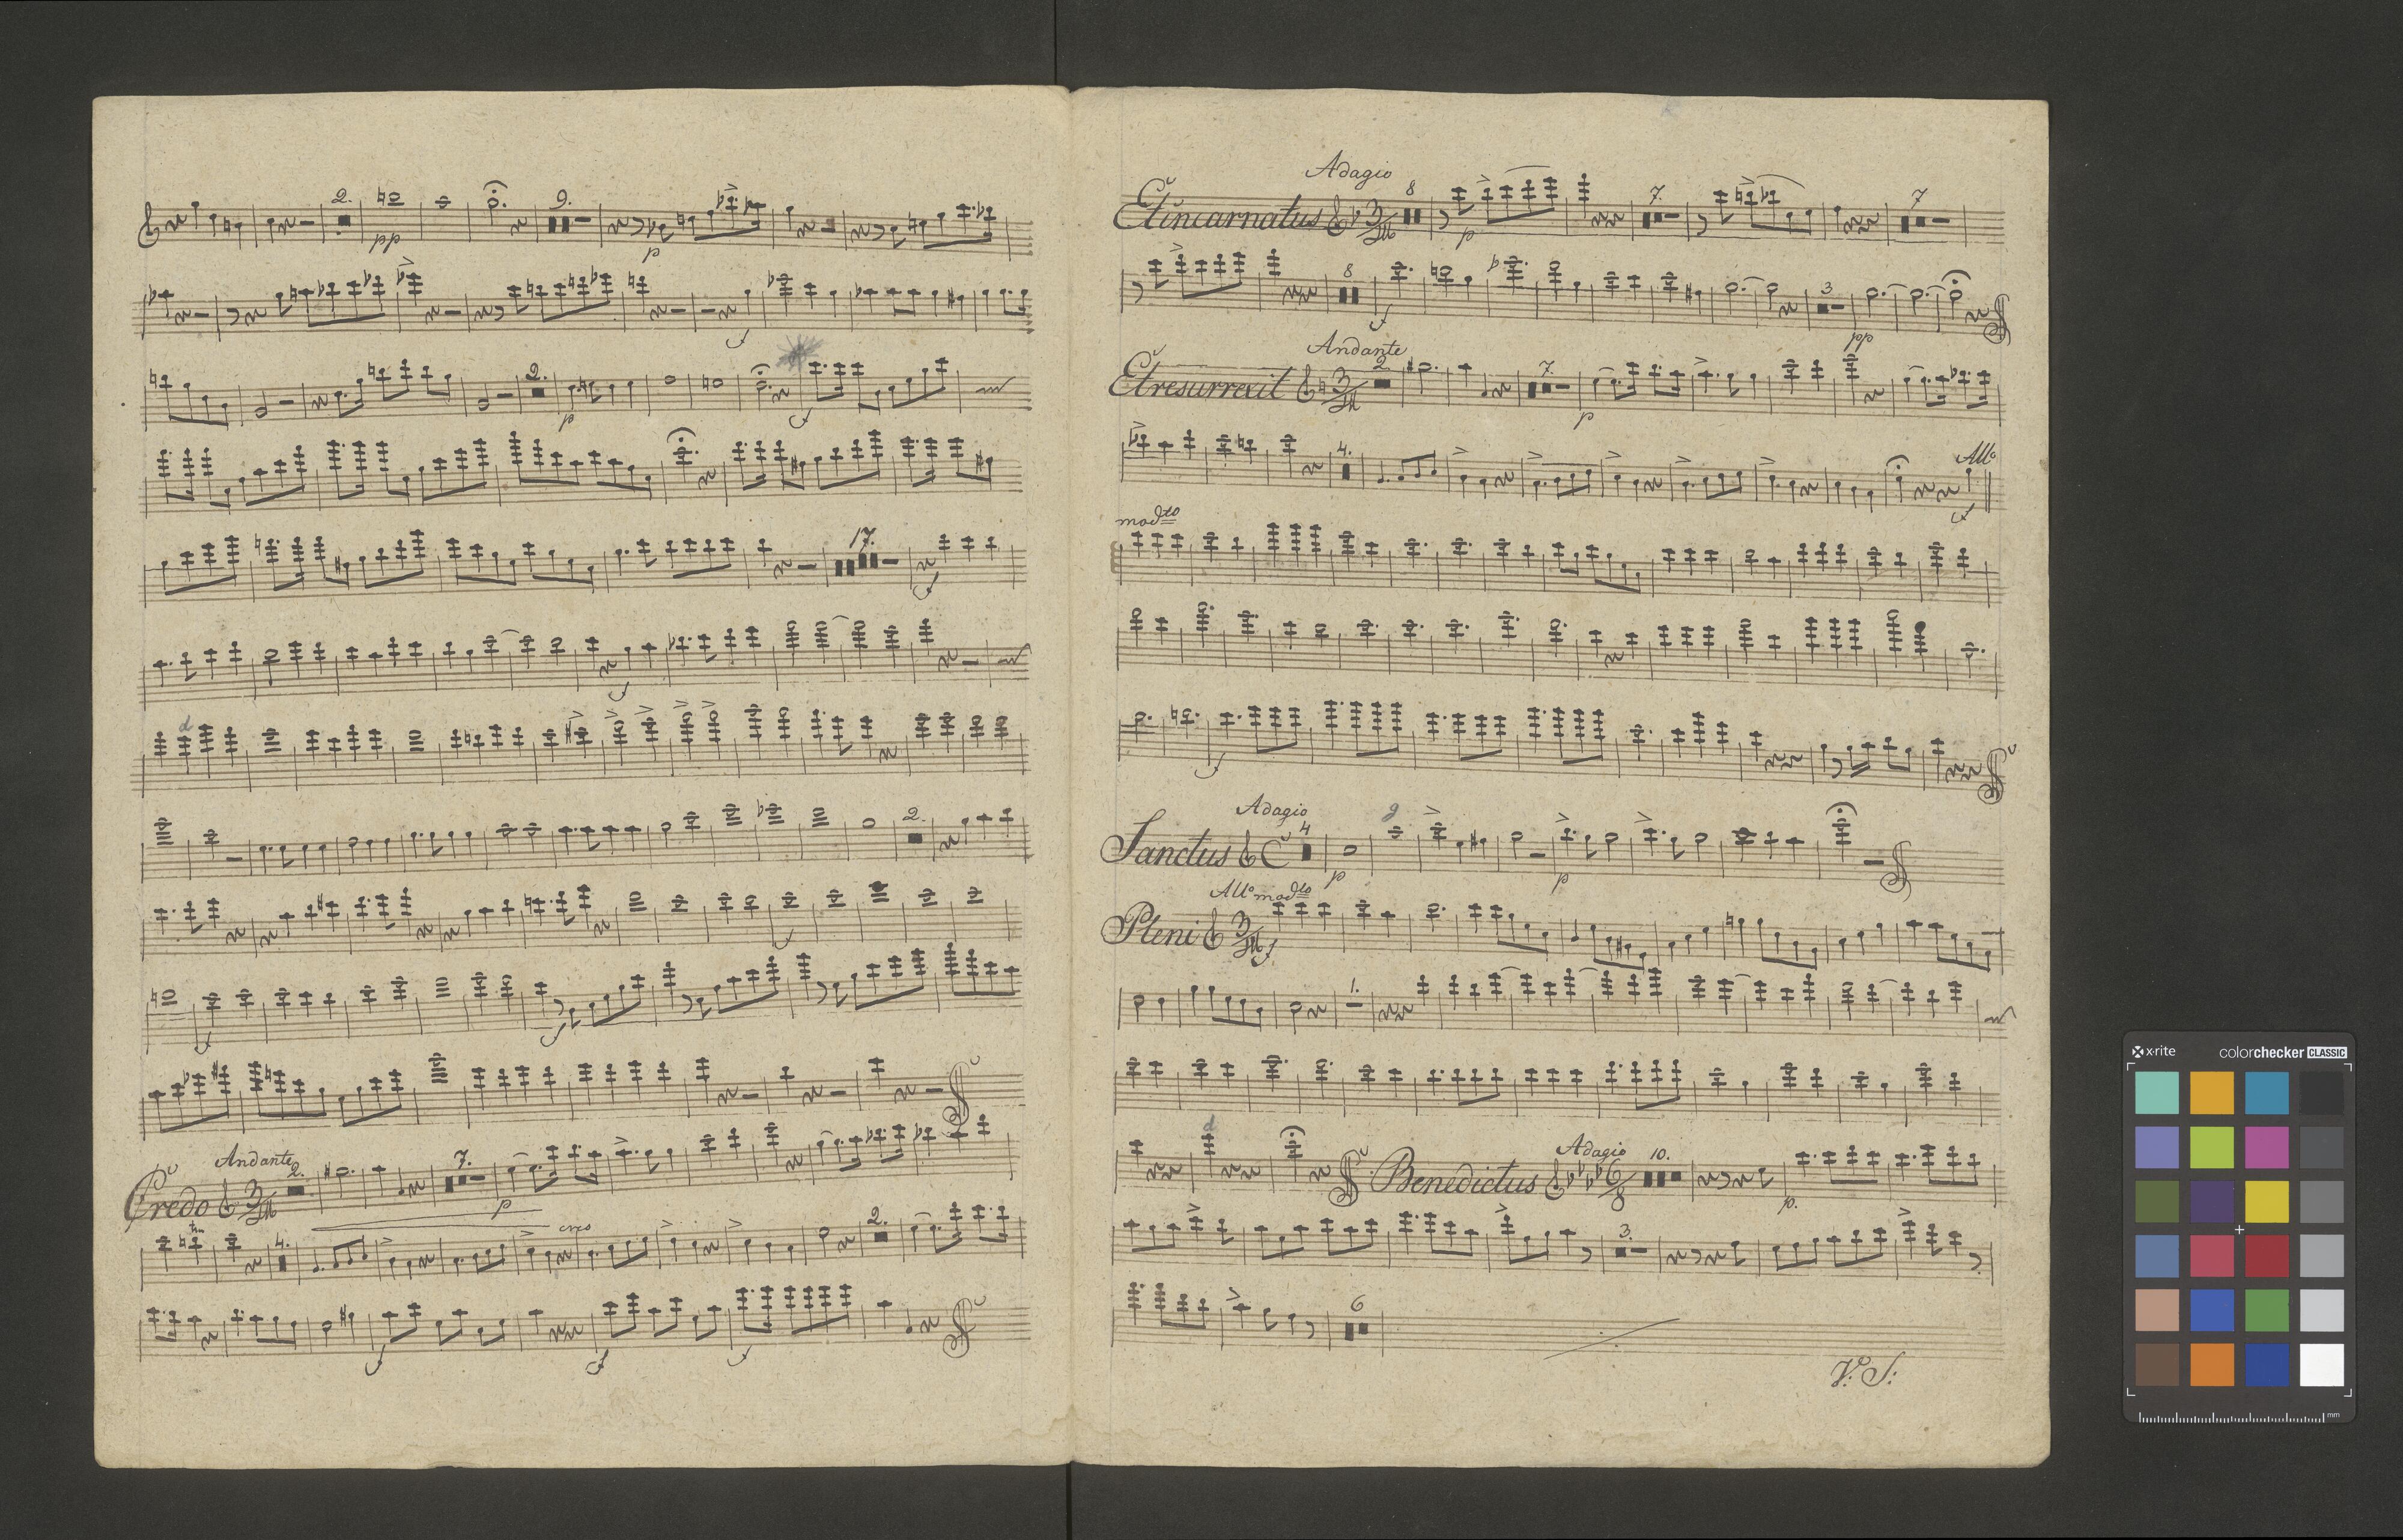 2.
9.
pp
p
2.
p
17.
d
2.
Andante
2.
7.
Credo 3/4
p
tr
cresc
4.
2.
Adagio
8
7.
7
Et incarnatus 3/4
p
8
3
pp
Andante
2
7.
Et resurrexit 3/4
p
4.
All°
mod^to
Adagio
4
g
Sanctus C
p
p
All° mod^to
Pleni 3/4
f
1.
d
Adagio
10.
Benedictus 6/8
p.
3.
6
V: S:
x-rite
colorchecker CLASSIC
mm